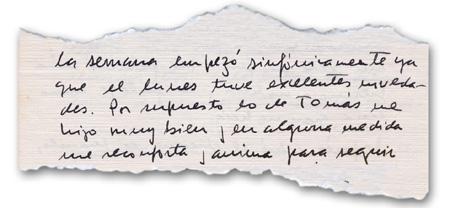 la semana empezó sinfónicamente ya
que el lunes tuve excelentes noveda-
des. Por supuesto lo de Tomás me
hizo muy bien y en alguna medida
me reconforta y anima para seguir